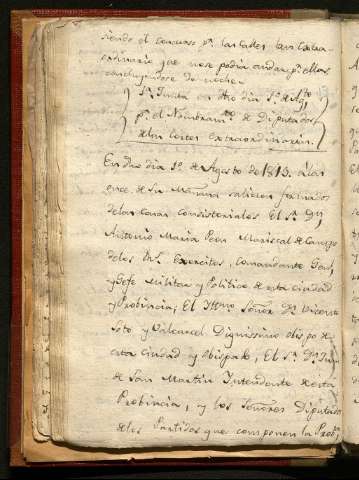 siendo el concurso pr. las calles tan extra-
ordinario que no se podia andar pr. ellas
concluyendose de noche.
Sa. Junta en dho dia 1º de Agto
pa. el Nombramto. de Diputados
de las Cortes extraordinarias.
En dho dia 1º. de Agosto de 1813. a las
once de su mañana salieron formados
de las casas consistoriales El Sr. Dn.
Antonio Maria Peon Mariscal de Campo
de los Rs. Exercitos, Comandante Genl.
y Gefe Militar y Politico de esta ciudad
y Provincia; El Yttmo Señor Dn. Vicente
Soto y Valcarcel Dignissimo obispo de
esta ciudad y obispado; El Sr. Dn. Juan
de San Martin Intendente de esta
Probincia, y los Señores Diputados
de los Partidos que componen la Probª.